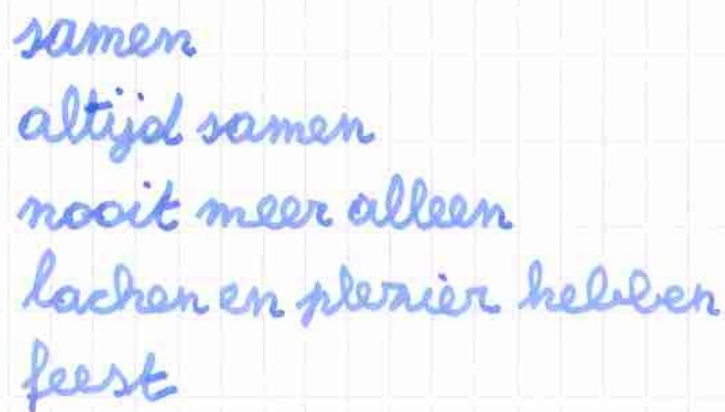 samen
altijd samen
nooit meer alleen
lachen en plezier hebben
feest